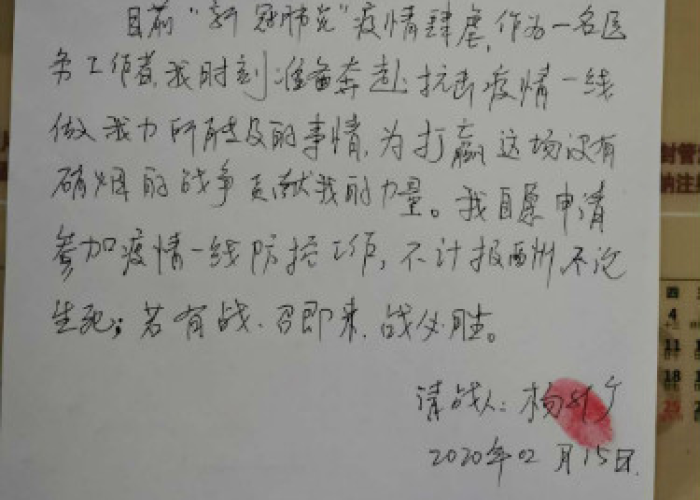 目前“新冠肺炎”疫情肆虐,作为一名医
务工作者,我时刻准备奔赴抗击疫情一线
做我力所能及的事情,为打赢这场没有
硝烟的战争贡献我的力量。我自愿申请
参加疫情一线防控工作,不计报酬,不论
生死;若有战、召即来、战必胜。
请战人:杨
2020年02月15日.
封管
纳注
四
4
11
18
25